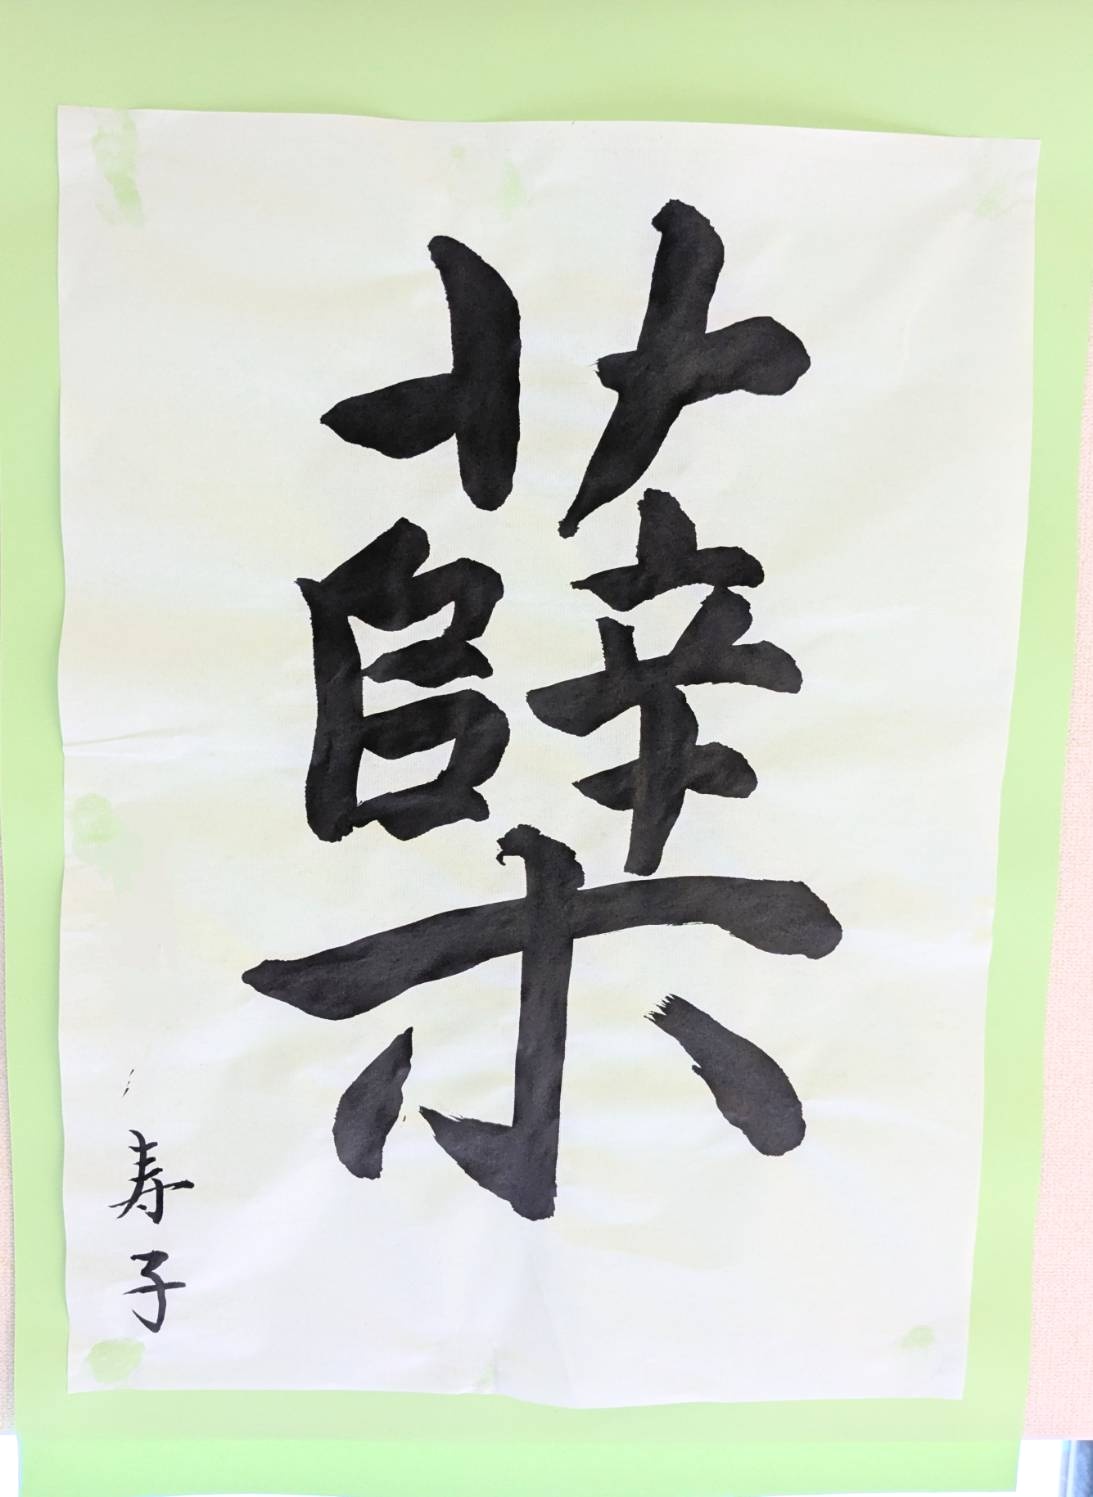 蘖
寿子